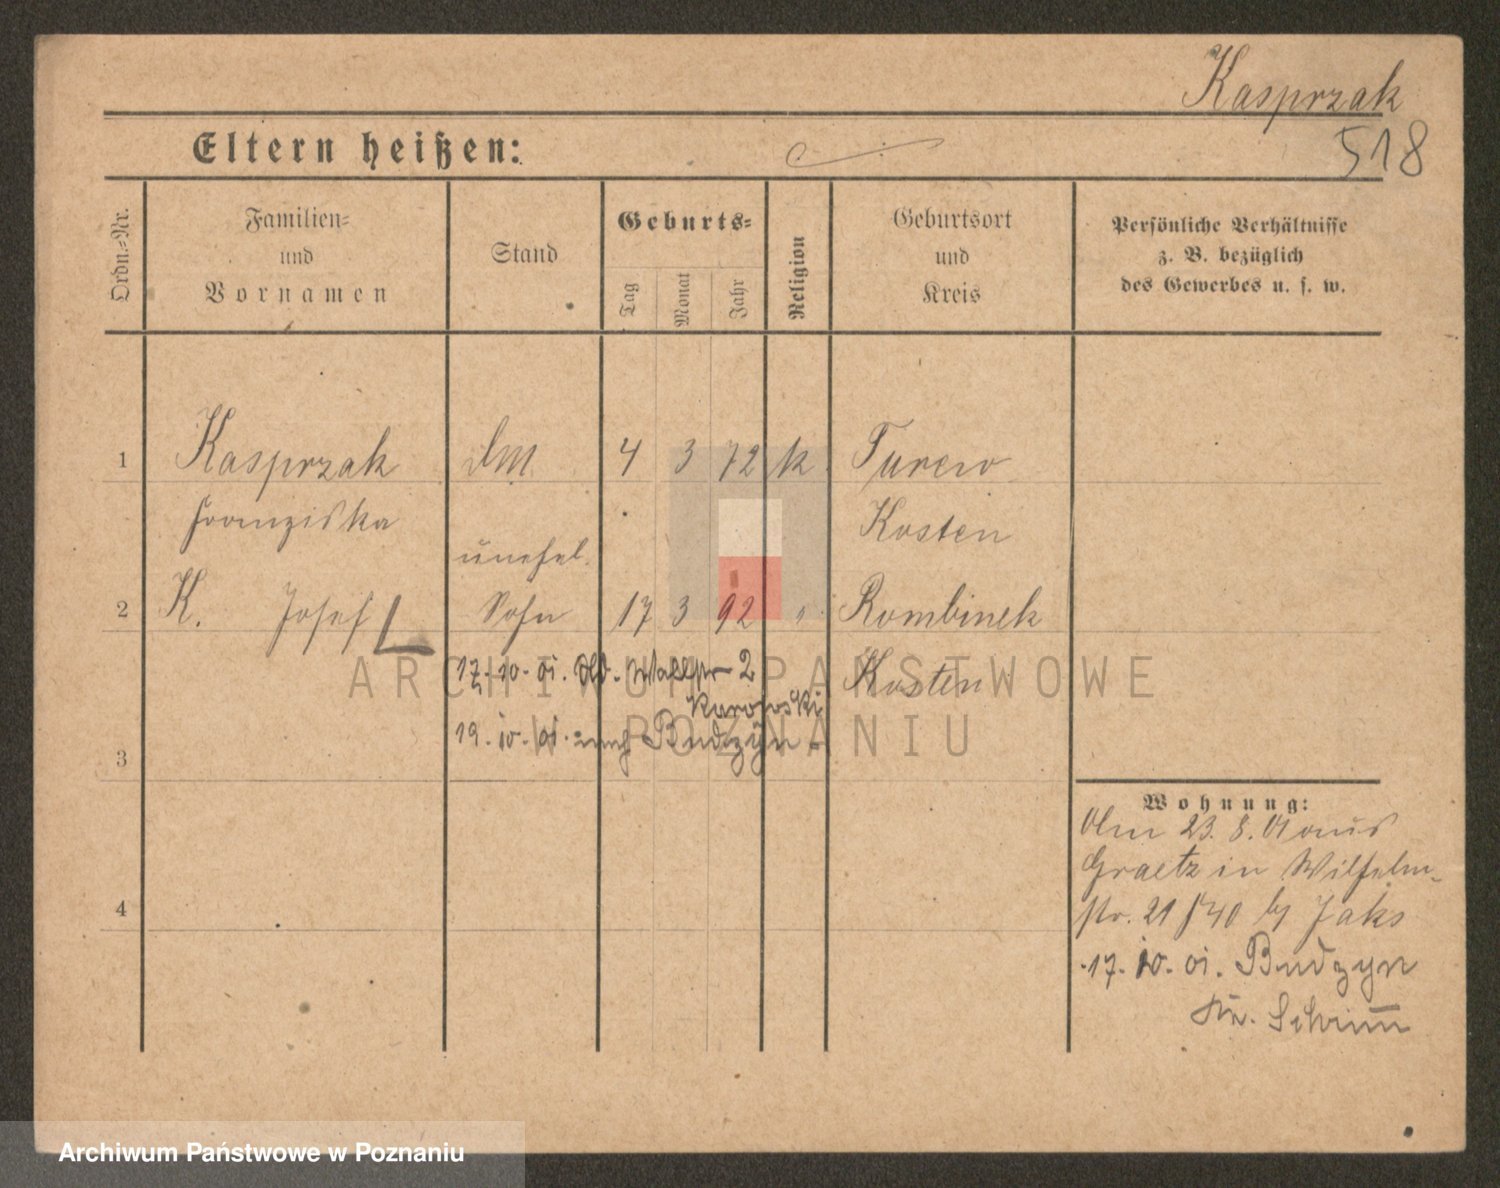 Kasprzak
518
Eltern heißen:
Ordn.-Nr.
Familien-
und
Vornamen
Stand
Geburts-
Tag
Monat
Jahr
Religion
Geburtsort
und
Kreis
Persönliche Verhältnisse
z. B. bezüglich
des Gewerbes u. s. w.
1 Kasprzak 4 3 72 k Turew
Franziska Kosten
unehel.
2 K. Josef Sohn 17 3 92 " Rombinek
17. 10. 01. 2 Kosten
19. 10. 01. nach Budzyn
3
Wohnung:
23. 8. 01 aus
Graetz in Wilhelm-
str. 21 Jaks
4
17. 10. 01. Budzyn
Kr. Schrimm
ARCHIWUM PAŃSTWOWE
W POZNANIU
Archiwum Państwowe w Poznaniu